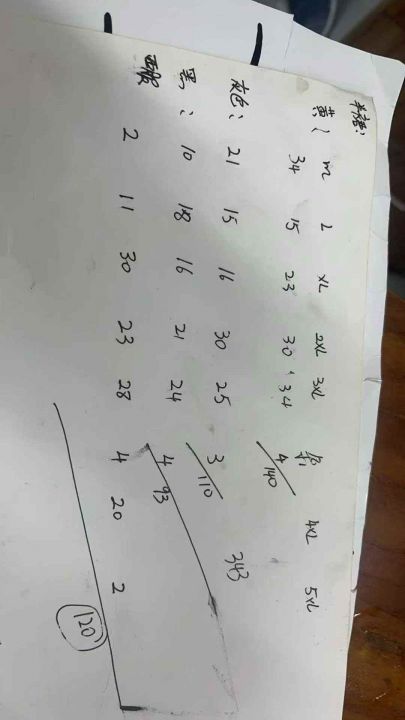 m L XL 2XL 3XL 4XL 5XL
黄: 34 15 23 30 34 4 140
灰色: 21 15 16 30 25 3 110
343
黑: 10 18 16 21 24 4 93
2 11 30 23 28 4 20 2
120